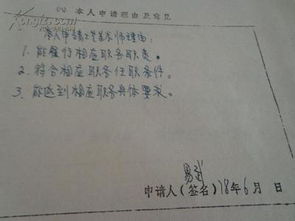 (四)本人申请理由及意见
本人申请工艺美术师理由:
1. 能履行相应职务职责。
2. 符合相应职务任职条件。
3. 能达到相应职务具体要求。
申请人(签名) 18年6月 日